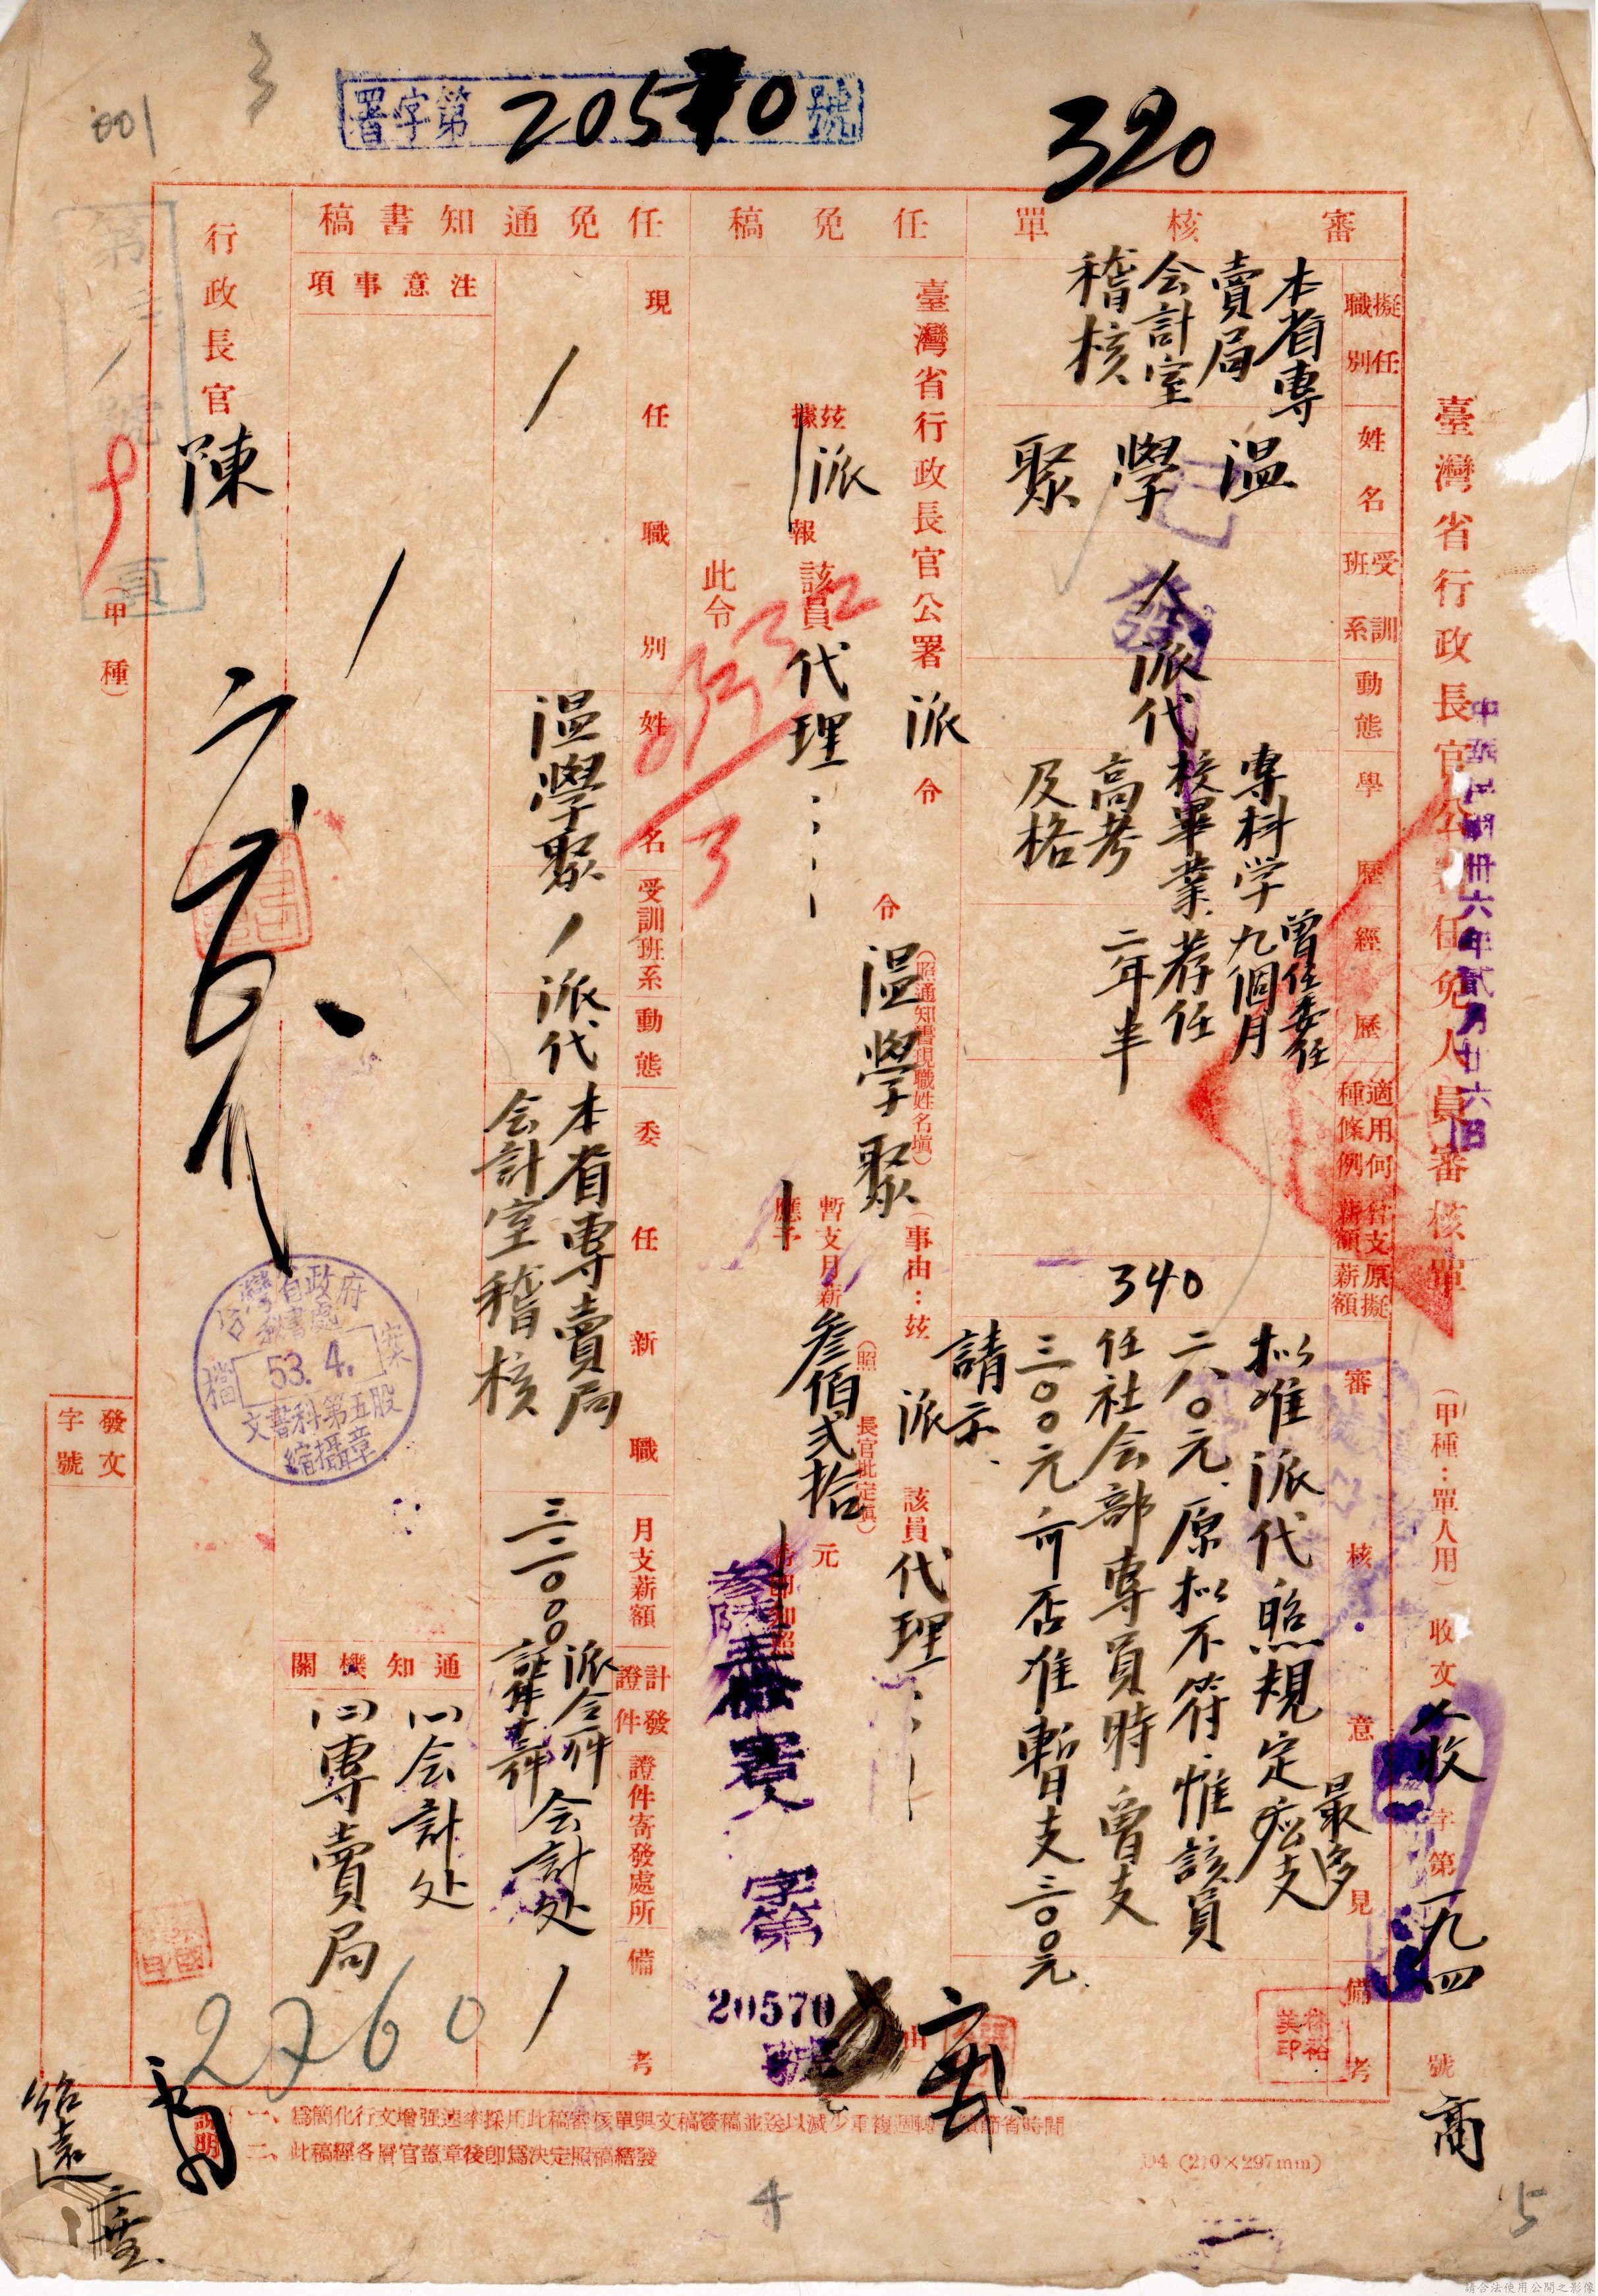 3
001
署字第20570號
320
臺灣省行政長官公署任免人員審核單
(甲種:單人用)
收文人收字第一九四號
中華民國卅六年貳月廿六日
審核單
擬任職別
本省專
賣局
会計室
稽核
姓名
温學聚
受訓班系
動態
派代
學歷
專科学
校畢業
高考
及格
經歷
曾任委任
九個月
荐任
二年半
適用何種條例
暫支薪額
原擬薪額
340
審核意見
拟准派代照規定最多
二八〇元原拟不符惟該員
任社会部專員時曾支
三〇〇元可否准暫支三〇〇元
請示
備考
任免稿
臺灣省行政長官公署派令
令温學聚
(照通知書現職姓名塡)
(事由:茲派該員代理
茲派
據報
該員代理
暫支月薪叁佰贰拾元
應予
(照長官批定塡)
此令
署
字第
20570
號
任免通知書稿
現任職別
姓名
温學聚
受訓班系
動態
派代
委任新職
本省專賣局
会計室稽核
月支薪額
三二〇〇〇
計發證件
派令一件
證件寄發處所
会計处
備考
注意事項
通知機關
㈠会計处
㈡專賣局
行政長官陳
(甲種)
發文
字號
台灣省政府
秘書處
檔案
53. 4.
文書科第五股
縮攝章
2760
說明
一、爲簡化行文增强速率採用此稿審核單與文稿簽稿並送以減少重複週轉手續節省時間
二、此稿經各層官蓋章後卽爲決定照稿繕發
D4 (210×297mm)
4
5
請合法使用公開之影像